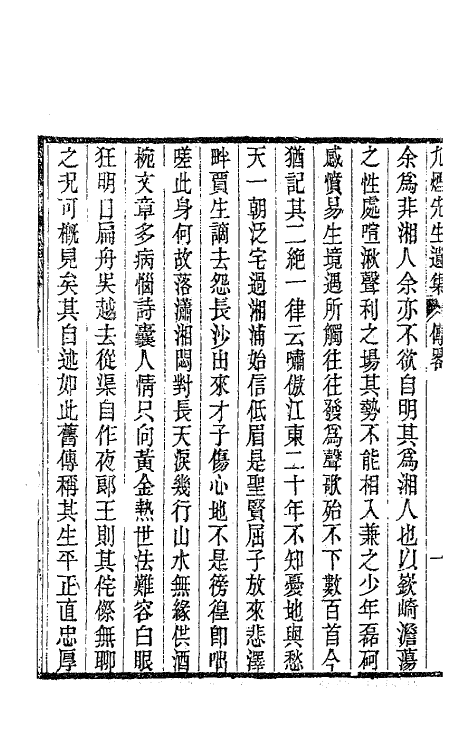 九煙先生遺集 傳畧 一
余爲非湘人余亦不欲自明其爲湘人也以嶔崎澹蕩
之性處喧湫聲利之場其勢不能相入兼之少年磊砢
感憤易生境遇所觸往往發爲聲歌殆不下數百首今
猶記其二絕一律云嘯傲江東二十年不知憂地與愁
天一朝泛宅過湘浦始信低眉是聖賢屈子放來悲澤
畔賈生謫去怨長沙由來才子傷心地不是徬徨卽咄
嗟此身何故落瀟湘悶對長天淚幾行山水無緣供酒
椀文章多病惱詩囊人情只向黃金熱世法難容白眼
狂明日扁舟吳越去從渠自作夜郎王則其侘傺無聊
之况可槪見矣其自述如此舊傳稱其生平正直忠厚